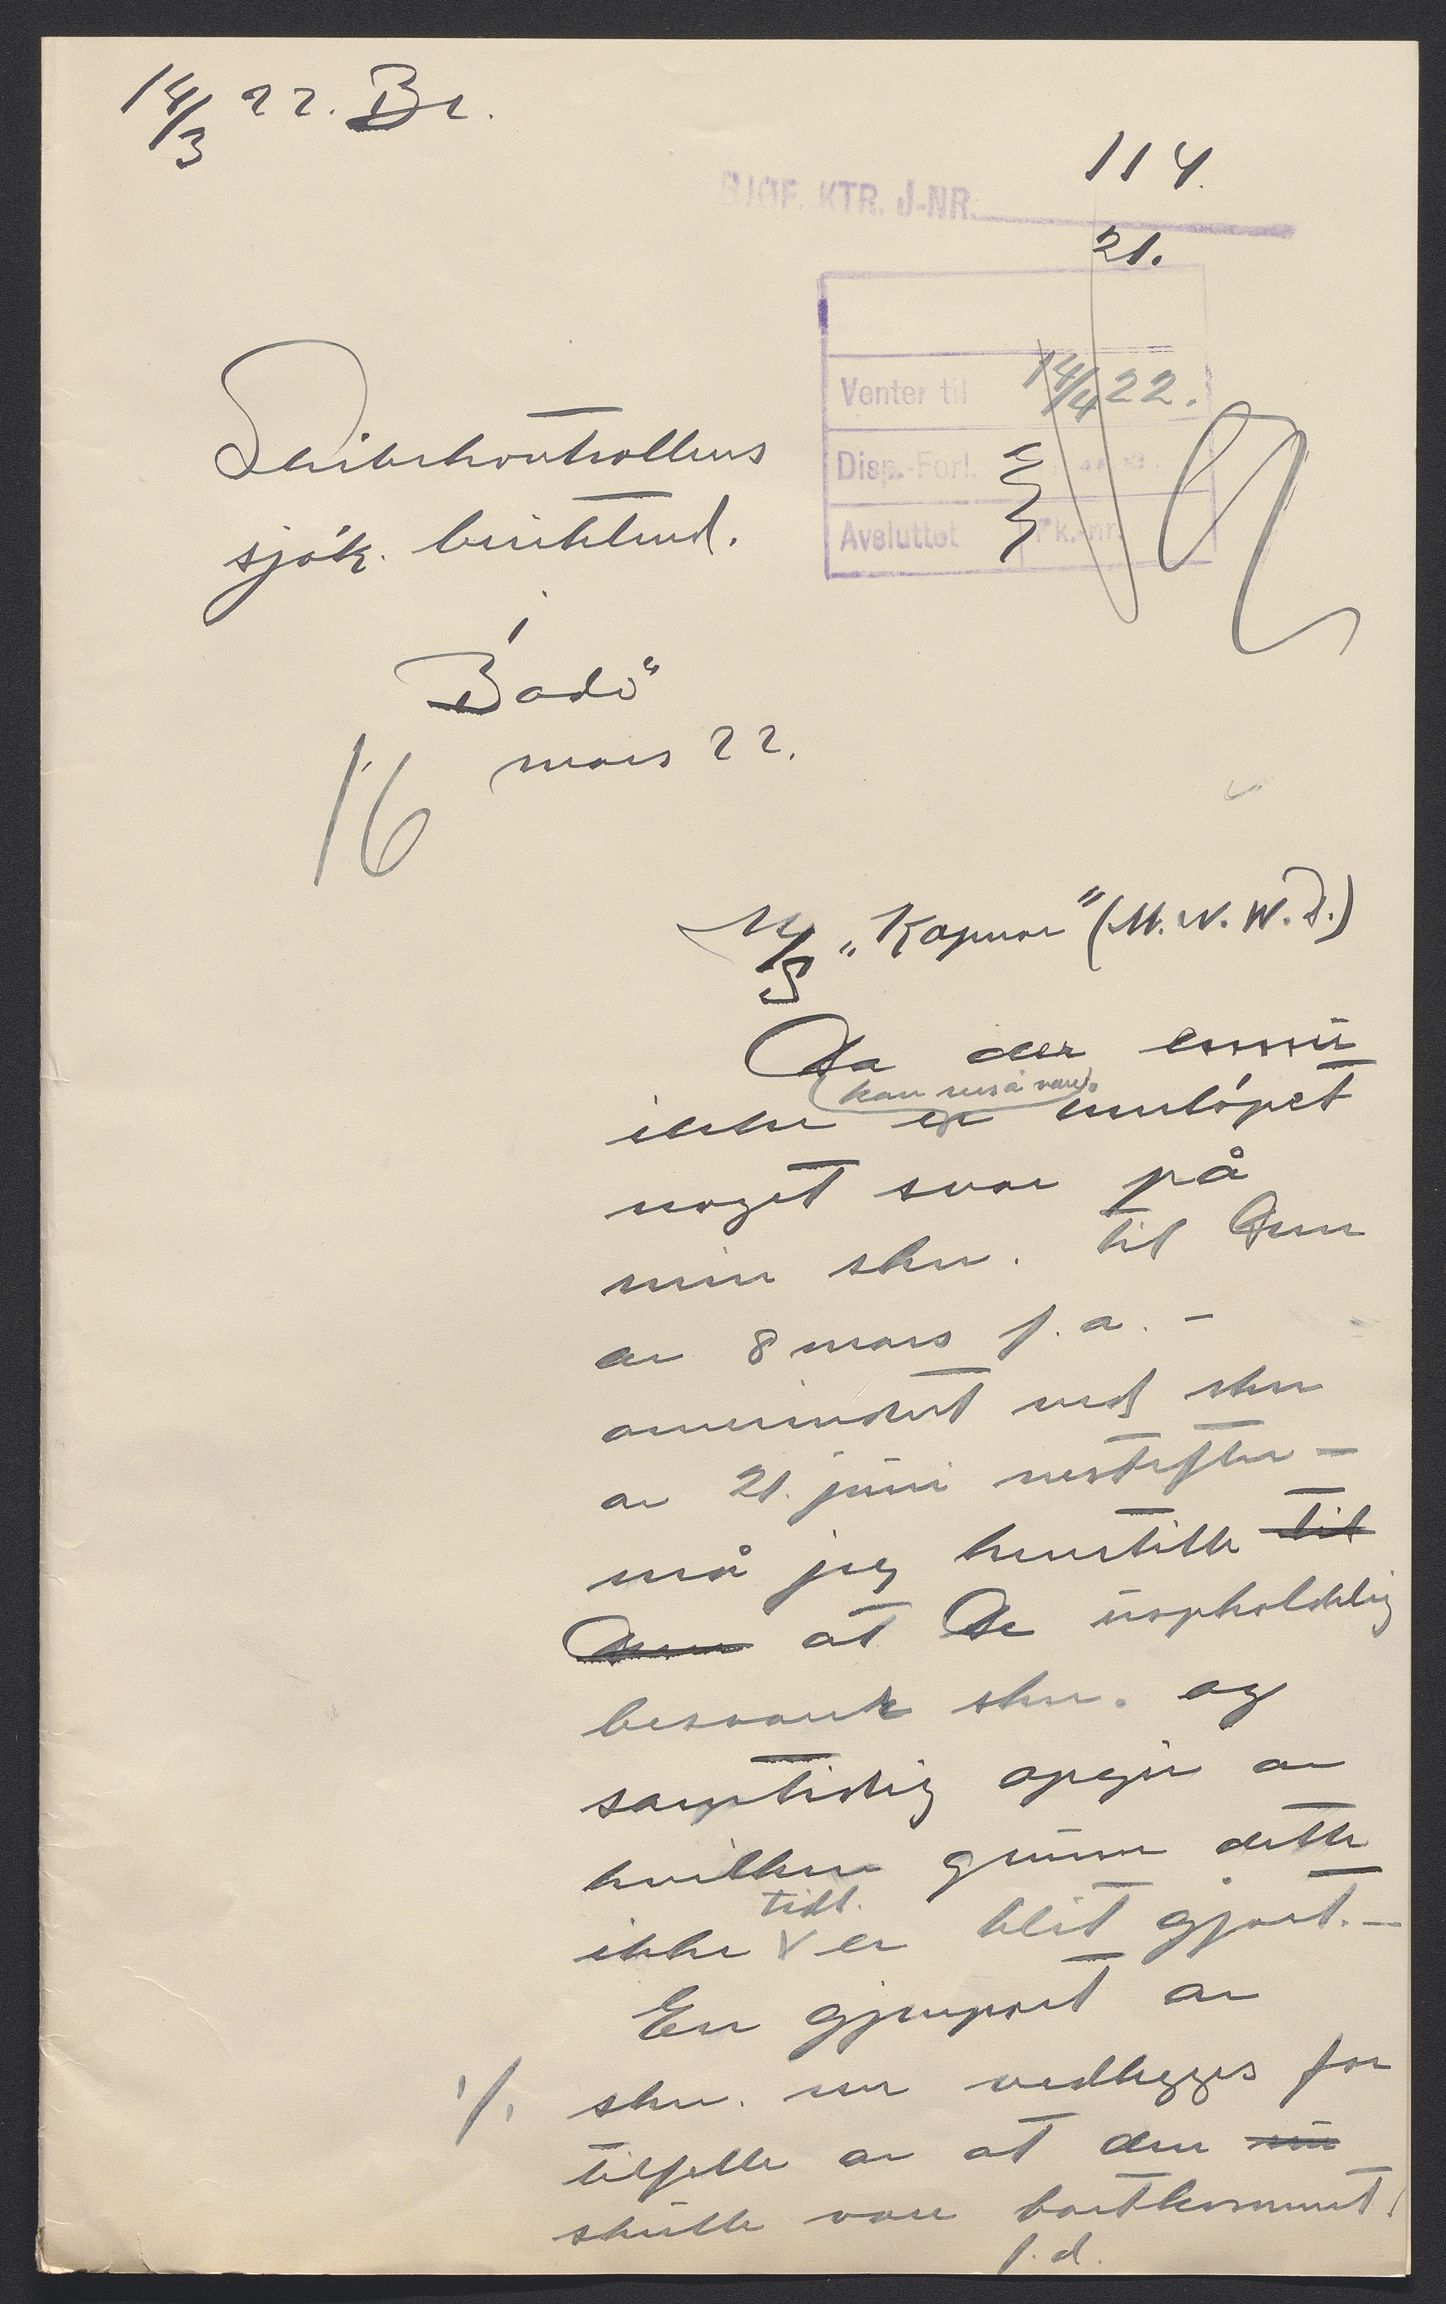 14/3 22. Br.
114.
BJØF. KTR. J-NR.
21.
Venter til 14/4 22.
Disp.-Forl.
Avsluttet Pk.-nr.
Skibskontrollens
sjøk.
Bodø
16 mars 22.
M/S „Kapnor" (M.N.W.D.)
Da der ennu
kan sees å være
ikke er innløpet
noget svar på
min skr. til Dem
av 8 mars f.a. –
omerindret ved skr
av 21. juni nestefter –
må jeg henstille til
Dem at De uopholdelig
besvarer skr. og
samtidig opgir av
hvilken grunn dette
tidl.
ikke er blit gjort. –
En gjenpart av
1/. skr. vedlegges for
tilfelle av at den nu
skulle være bortkommet!
f.d.